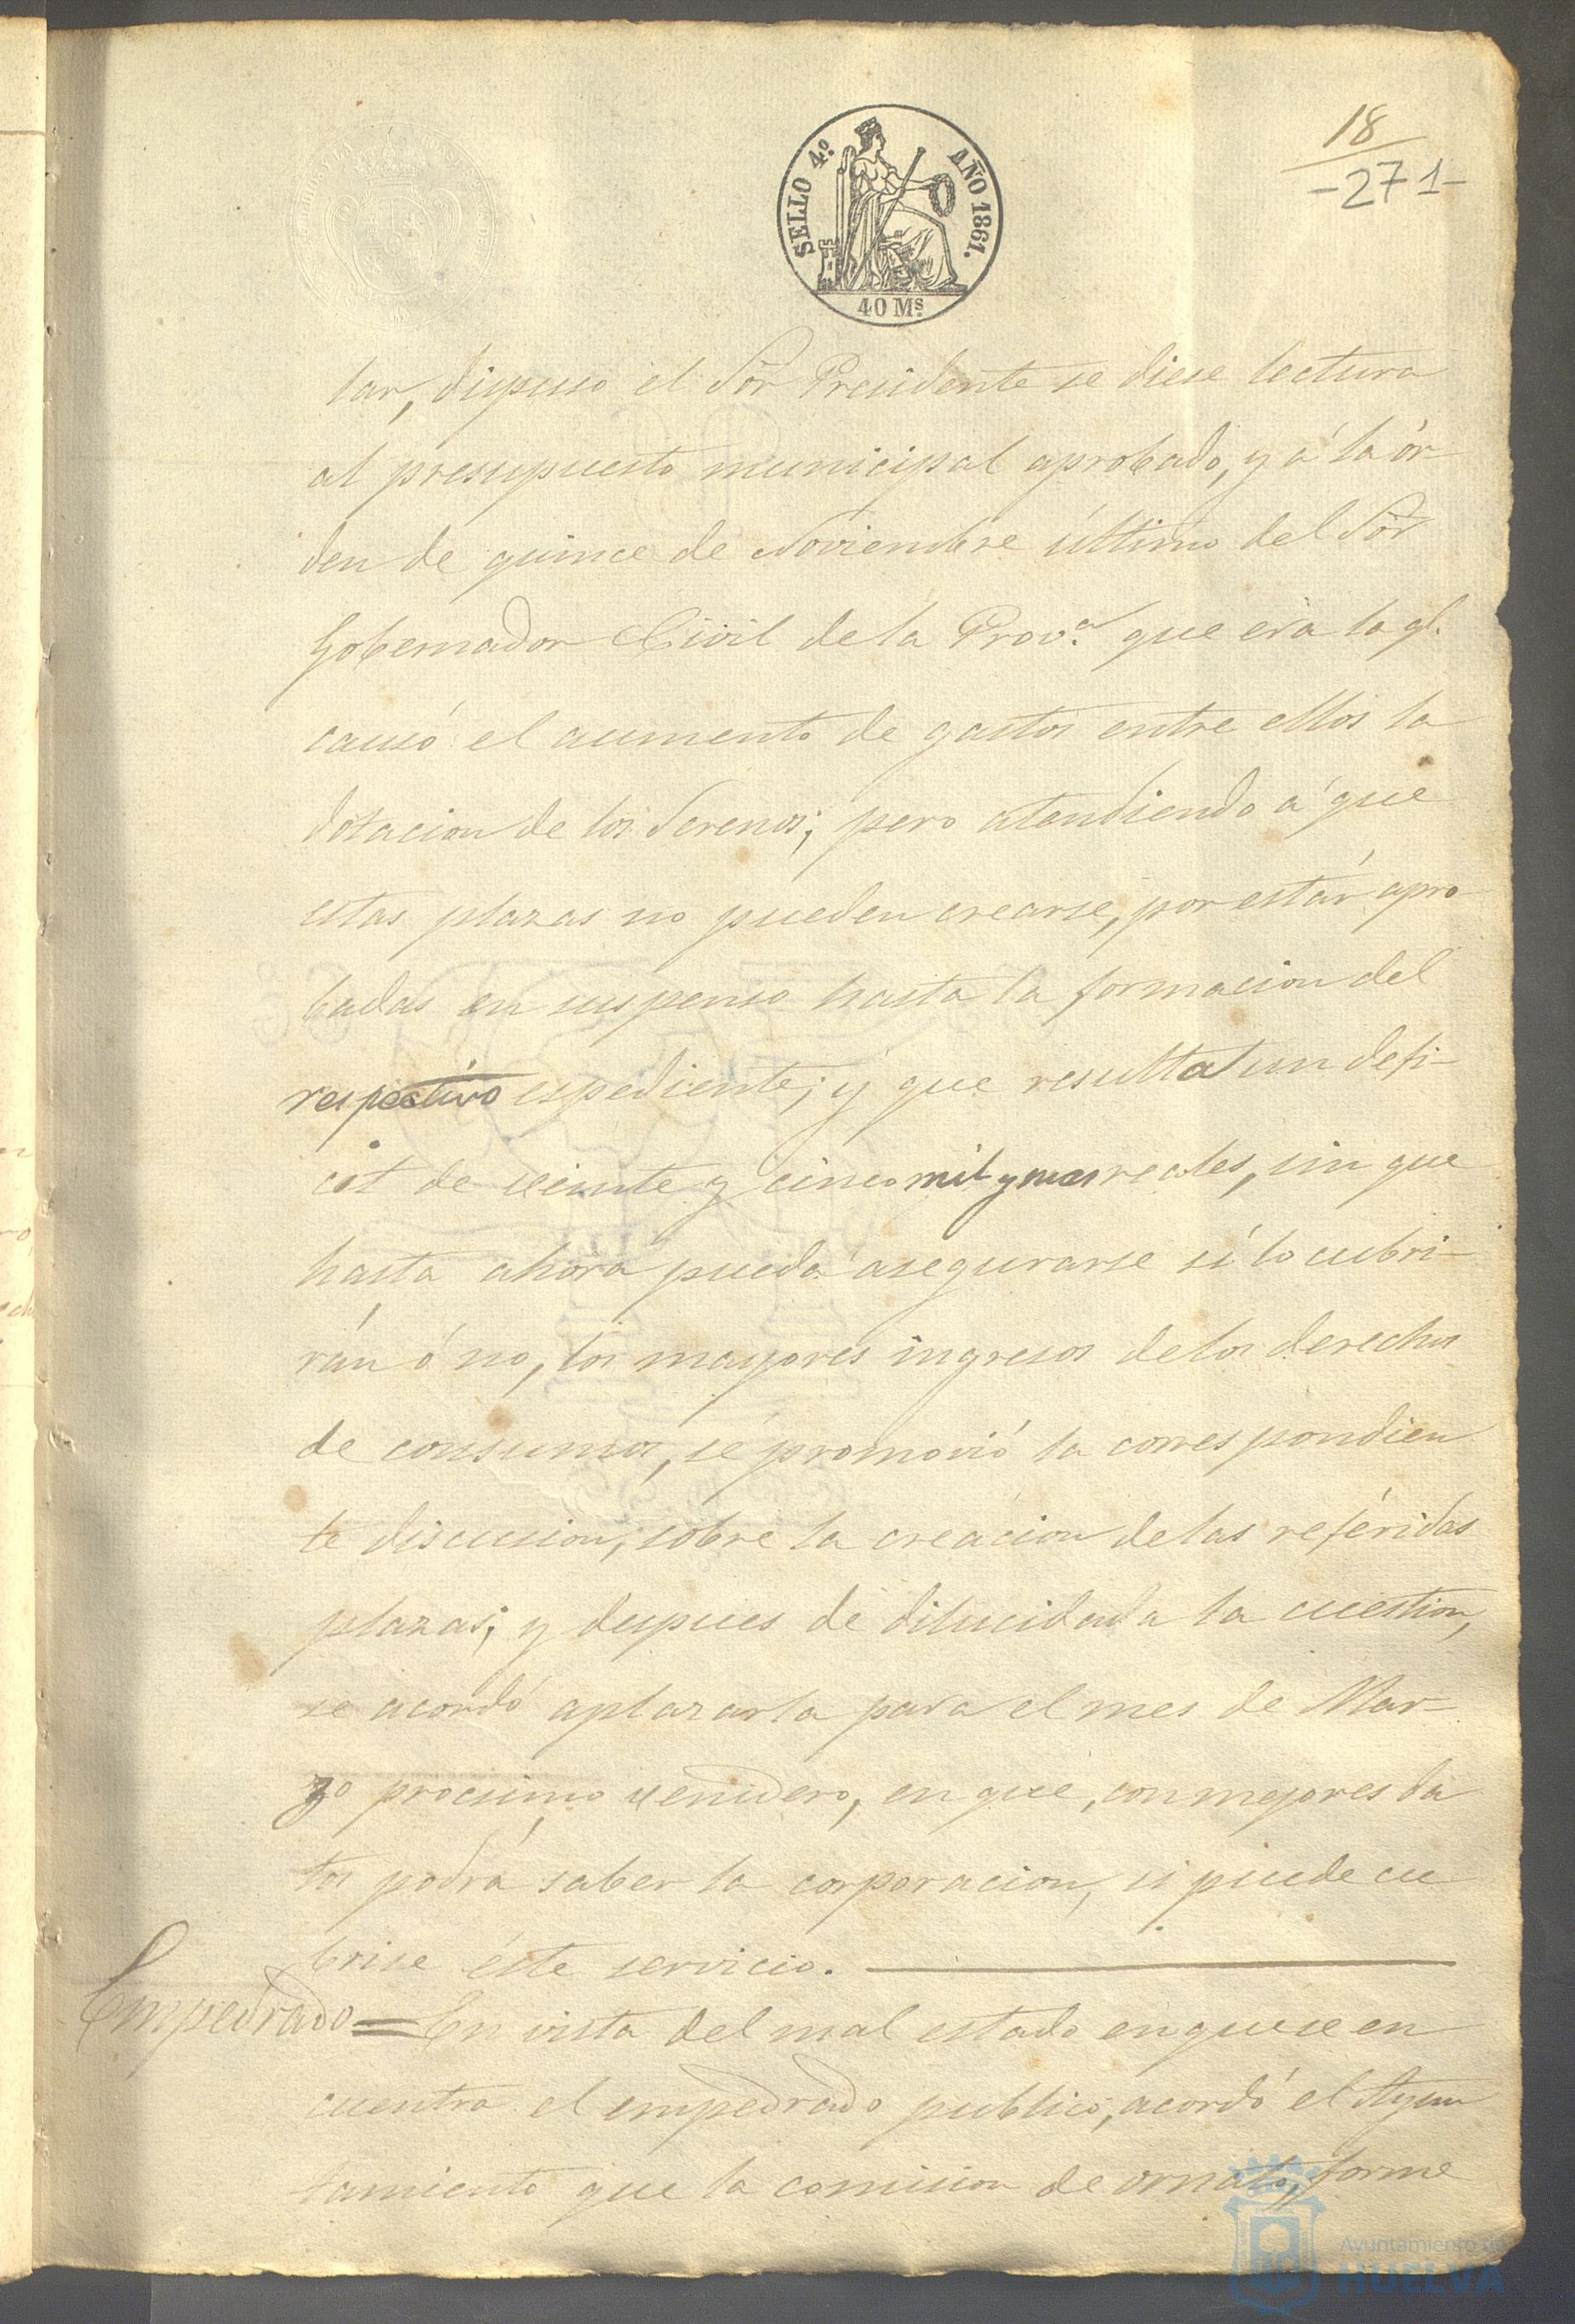 18
-271-
SELLO 4º. AÑO 1861.
40 Ms.
tar, dispuso el Sôr Presidente se diese lectura
al presupuesto municipal aprobado, y á la ór-
den de quince de Noviembre último del Sôr
Gobernador Civil de la Prov.ª que era la ql.
causó el aumento de gastos entre ellos la
dotacion de los Serenos; pero atendiendo á que
estas plazas no pueden crearse, por estár apro-
badas en suspenso hasta la formacion del
respectivo espediente; y que resulta un defi-
cit de veinte y cinco mil y mas reales, sin que
hasta ahora pueda asegurarse si lo cubri-
rán ó no, los mayores ingresos de los derechos
de consumos, se promovió la correspondien
te discusion, sobre la creacion de las referidas
plazas; y despues de dilucidada la cuestion,
se acordó aplazarla para el mes de Mar-
zo procsimo venidero, en que, con mejores da
tos podrá saber la corporacion, si puede cu
brise éste servicio.
Empedrado = En vista del mal estado en que se en
cuentra el empedrado publico, acordó el Ayun
tamiento que la comision de ornato, forme
Ayuntamiento de
HUELVA